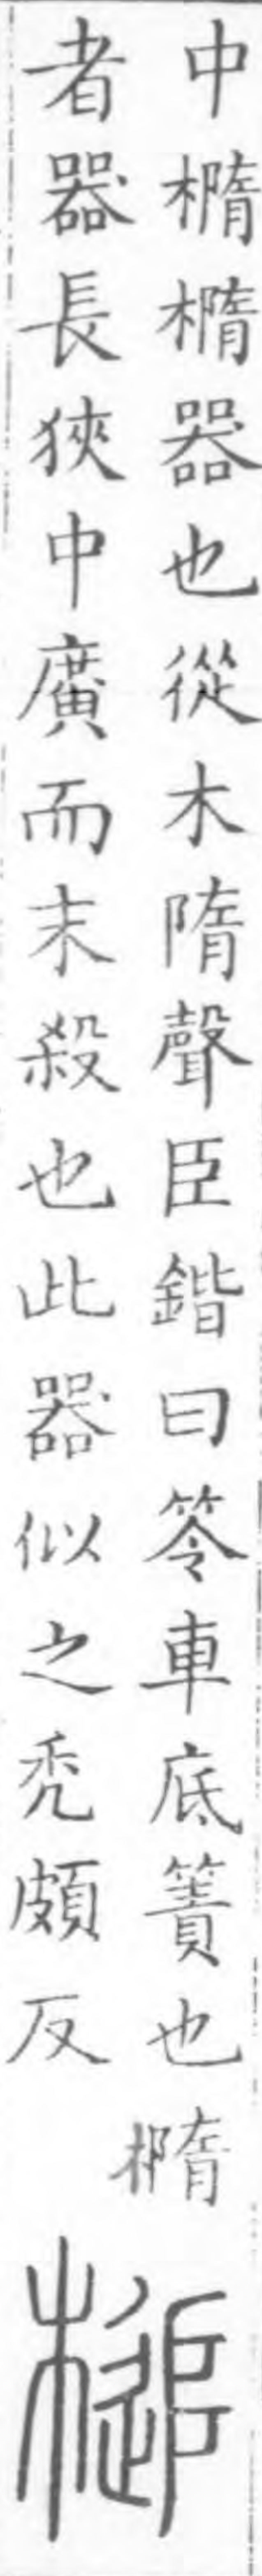 中橢橢器也從木隋聲臣鍇曰笭車底簀也橢
者器長狹中廣而末殺也此器似之禿頗反
槌